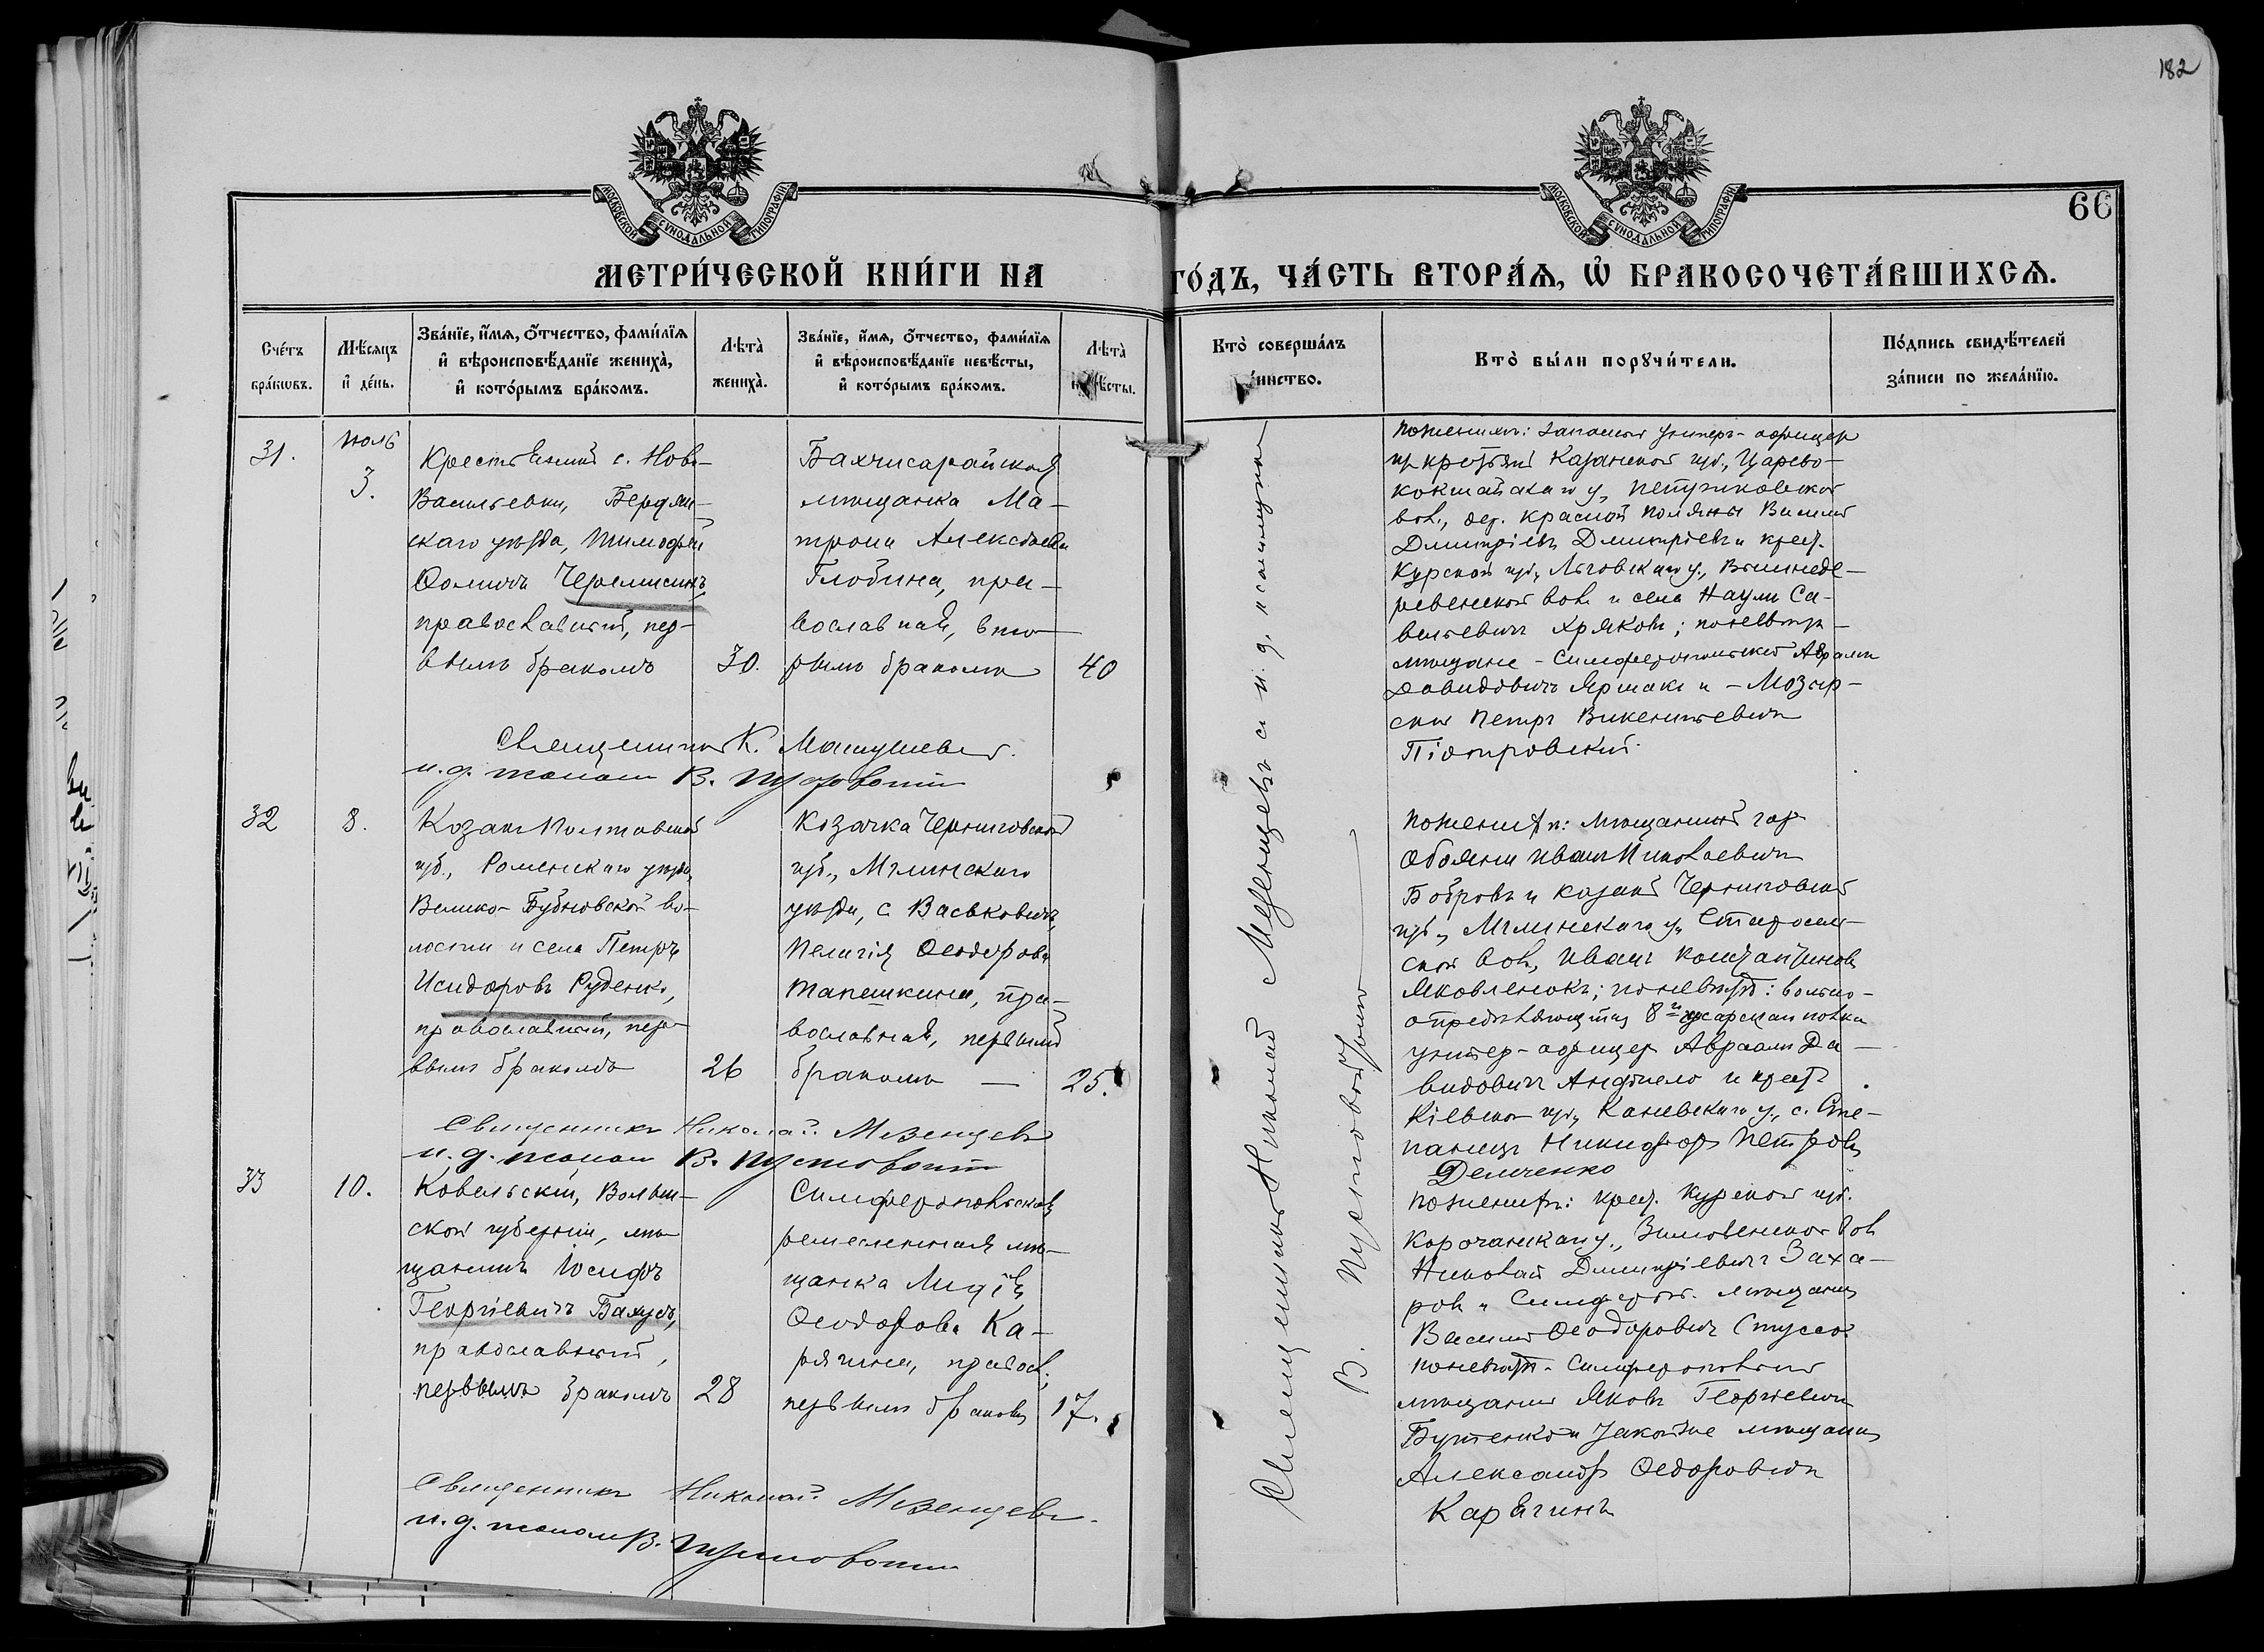 182
66
МОСКОВСКОЙ СѴНОДАЛЬНОЙ ТИПОГРАФІИ
МОСКОВСКОЙ СѴНОДАЛЬНОЙ ТИПОГРАФІИ
МЕТРИ́ЧЕСКОЙ КНИ́ГИ НА ГО́ДЪ, ЧА́СТЬ ВТОРА́Ѧ, Ѽ БРАКОСОЧЕТА́ВШИХСѦ.
Сче́тъ
бра́кѡвъ.
Мѣ́сѧцъ
и҆ де́нь.
Зва́нїе, и҆́мѧ, ѻ҆́тчество, фами́лїѧ
и҆ вѣроисповѣ́данїе жениха̀,
и҆ кото́рымъ бра́комъ.
Лѣта̀
жениха̀.
Зва́нїе, и҆́мѧ, ѻ҆́тчество, фами́лїѧ
и҆ вѣроисповѣ́данїе невѣ́сты,
и҆ кото́рымъ бра́комъ.
Лѣта̀
невѣ́сты.
Кто̀ соверша́лъ
та́инство.
Кто̀ бы́ли порꙋчи́тели.
По́дпись свидѣ́телей
за́писи по жела́нїю.
31.
Июль
3.
Крестьянинъ с. Ново-
Васильевки, Бердян-
скаго уѣзда, Тимофей
Ѳомичъ Черемисинъ,
православный, пер-
вымъ бракомъ
30.
Бахчисарайская
мѣщанка Ма-
трона Алексѣева
Глобина, пра-
вославная, вто-
рымъ бракомъ
40
Священникъ К. Мацушевъ.
и. д. псалом В. Пустовойт
По женихѣ: запасный унтеръ-офицеръ
изъ крестьянъ Казанской губ., Царево-
кокшайскаго у., Петриковской
вол., дер. Красной Поляны Василий
Дмитріевъ Дмитріевъ и крест.
Курской губ., Льговскаго у., Вышнеде-
ревенской вол. и села Наумъ Са-
вельевичъ Хряковъ; по невѣстѣ
мѣщане - Симферопольский Авраамъ
Давидовичъ Яршакъ и - Мозыр-
ский Петръ Викентьевичъ
Піотровский.
32
8.
Козакъ Полтавской
губ., Роменскаго уѣзда,
Велико-Бубновской во-
лости и села Петръ
Исидоровъ Руденко,
православный, пер-
вымъ бракомъ
26
Козачка Черниговской
губ., Мглинскаго
уѣзда, с. Васьковичъ,
Пелагія Ѳеодорова
Тапешкина, пра-
вославная, первымъ
бракомъ —
25.
Священникъ Николай Мезенцевъ
и. д. псалом В. Пустовойт
По женихѣ: мѣщанинъ гор
Обояни Иванъ Николаевичъ
Бобровъ и козакъ Черниговской
губ., Мглинскаго у., Старосель-
ской вол., Иванъ Константиновъ
Яковленокъ; по невѣстѣ: вольно-
опредѣляющійся 8го гусарскаго полка
унтер-офицер Авраамъ Да-
видовичъ Анджело и крест.
Кіевской губ., Каневскаго у., с. Сте-
панецъ Никифоръ Петровъ
Демченко
33
10.
Ковельскій, Волын-
ской губерніи, мѣ-
щанинъ Іосифъ
Георгіевичъ Балусъ,
православный,
первымъ бракомъ
28
Симферопольская
ремесленная мѣ-
щанка Лидія
Ѳеодорова Ка-
рягина, правосл.,
первымъ бракомъ
17.
Священникъ Николай Мезенцевъ.
и. д. псалом В. Пустовойт
По женихѣ: крест. Курской губ.
Корочанскаго у., Зимовенской вол
Николай Дмитріевичъ Заха-
ровъ и Симфероп. мѣщанинъ
Василий Ѳеодоровичъ Стуссъ
по невѣстѣ - Симферопольский
мѣщанинъ Яковъ Георгіевичъ
Бутенко и такой же мѣщанинъ
Александръ Ѳедоровичъ
Карягинъ
Священникъ Николай Мезенцевъ с и. д. псаломщика
В. Пустовойтомъ